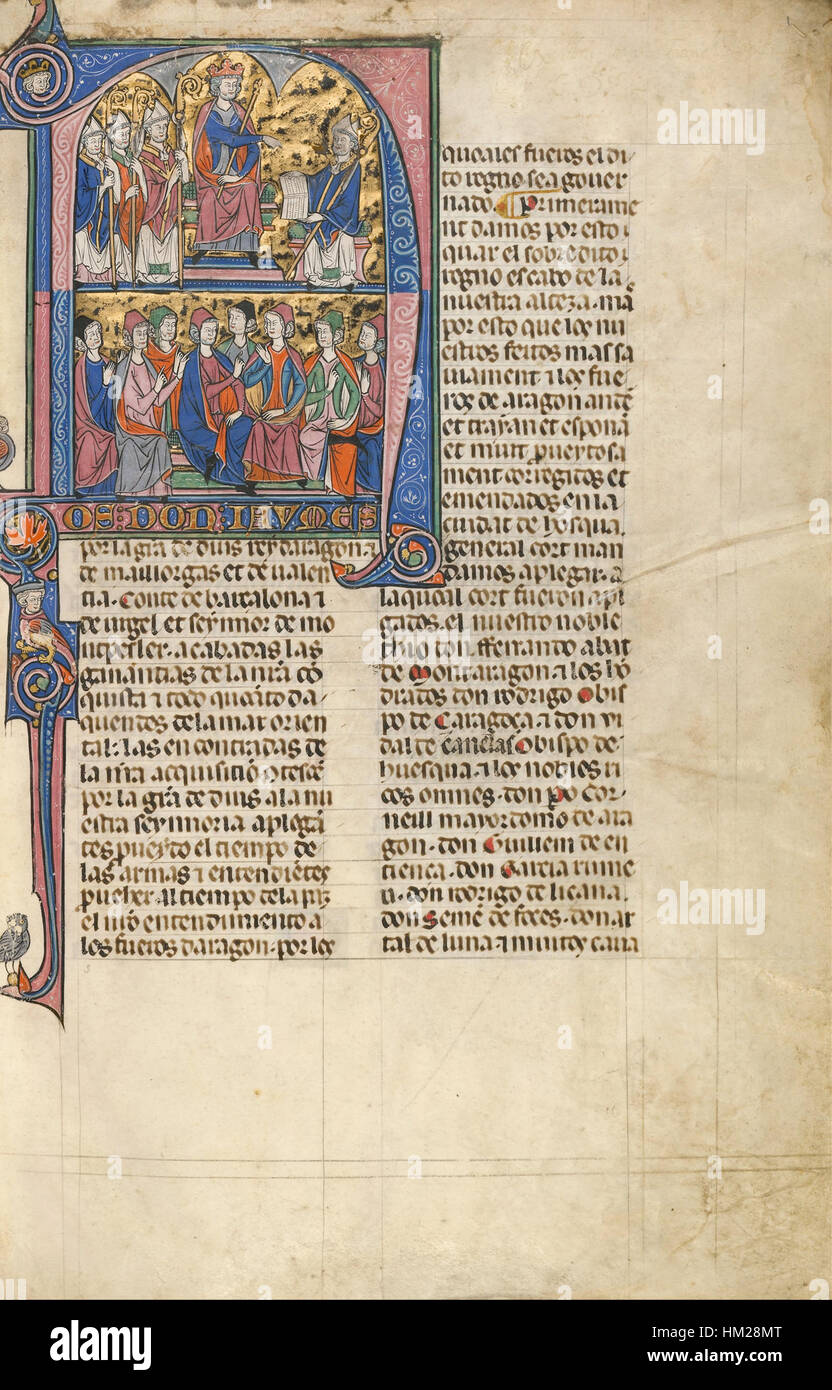 OS: DON: IAUMES
por la gr̄a de dius rey daragon ⁊
de mallorgas et de ualen
tia. Conte de barçalona ⁊
de urgel et seynnor de mo
ntpesler. acabadas las
ganantias de la nr̄a cō
quista ⁊ todo quanto da
quendos de la mar orien
tal: las encontradas de
la nr̄a acquisitiō
por la gr̄a de dius a la nu
estra seynnoria aplegā
tes pueyto el tiempo de
las armas ⁊ entendiētes
pueher. al tiempo de la paz
el nr̄o entendimiento a
los fueros daragon. por los
quoales fueros el di
to regno sea gouer
nado. Primerame
nt damos por esto ⁊
quar el sobredito
regno es cabo de la
nuestra alteza. mā
por esto que los nu
estros feitos mas sa
uiament ⁊ los fue
ros de aragon antē
et trayan et esponā
et muit prueytosa
ment corregitos et
emendados en la
ciudat de hosqua.
general cort man
damos aplegar. a
la quoal cort fueron apl
gados. el nuestro noble
thio don fferrando abat
de Montaragon ⁊ los hō
drados don rodrigo Obis
po de Caragoça ⁊ don vi
dal de canelas Obispo de
huesqua. ⁊ los nobles ri
cos omnes. don Po cor-
neill mayordomo de ara
gon. don Guillem de en
tienca. don Garcia rume
u. don rodrigo de liçana.
don Semē de foçes. don ar
tal de luna ⁊ muitos caua
alamy
alamy
alamy
Image ID: HM28MT
www.alamy.com